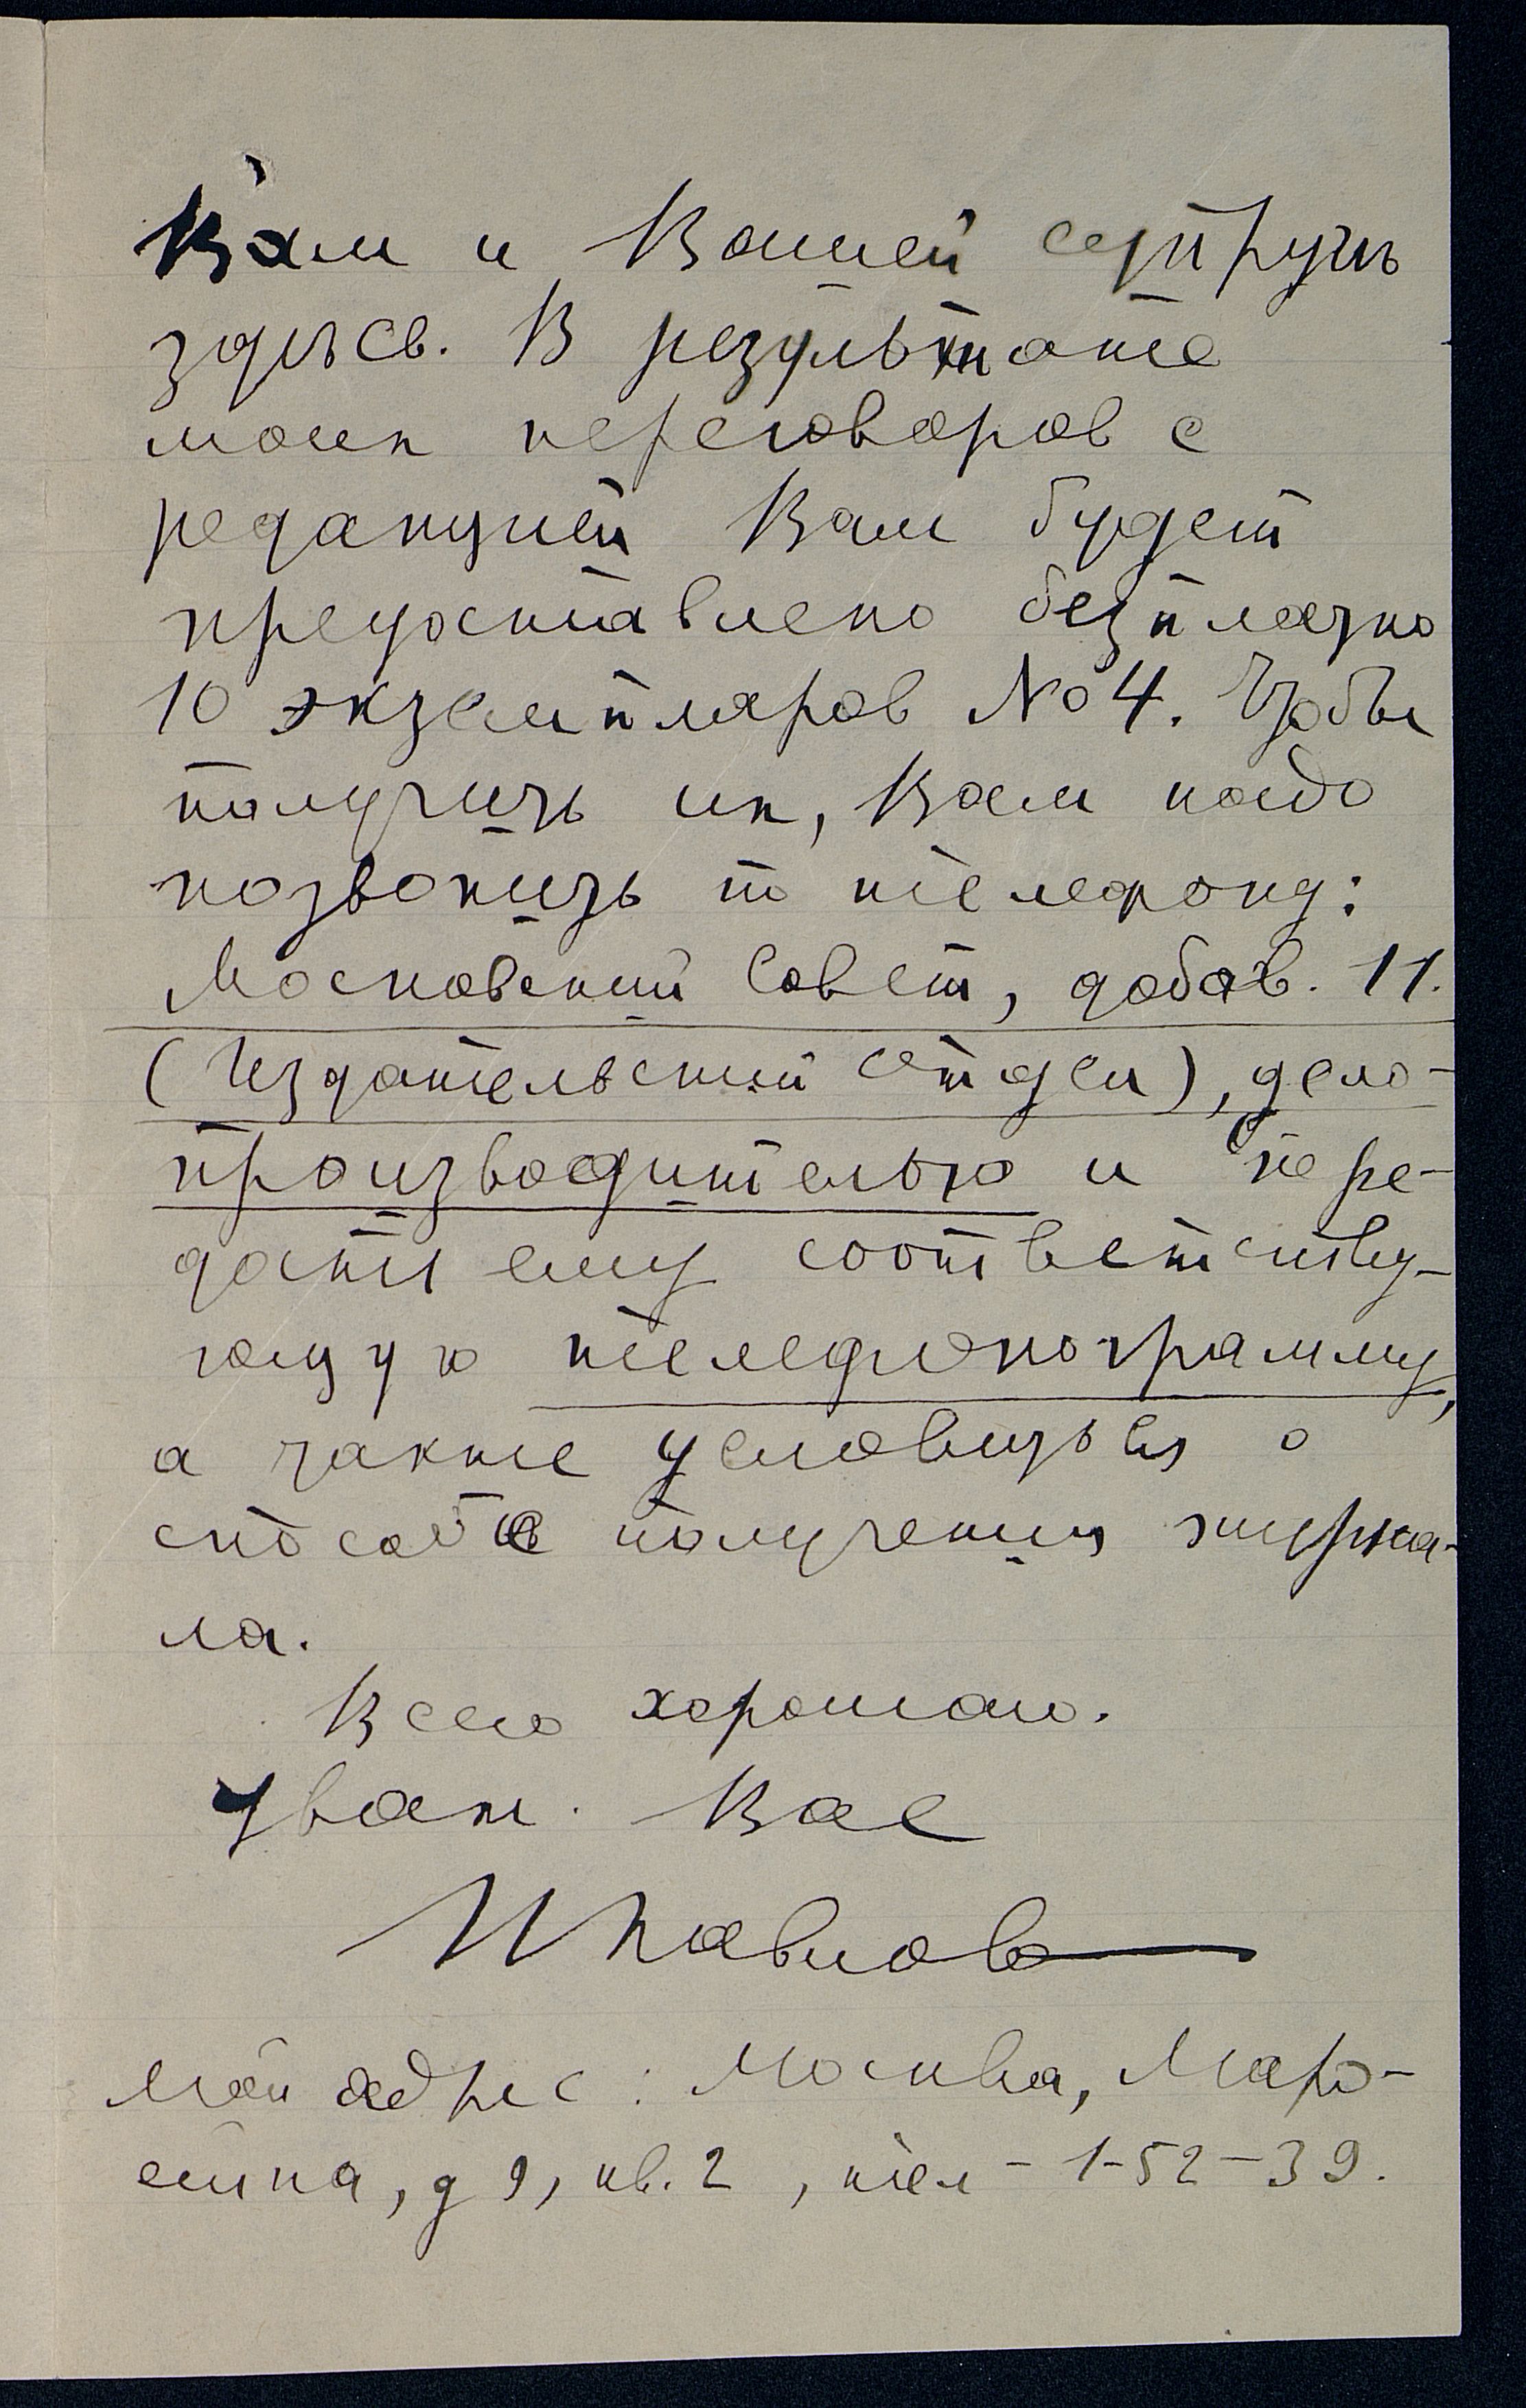 Вам и Вашей супругѣ
здѣсь. В результате
моих переговоров с
редакцией Вам будет
предоставлено безплатно
10 экземпляров № 4. Чтобы
получить их, Вам надо
позвонить по телефону:
Московский Совет, добав. 11.
(Издательский отдел), дело-
производителю и пере-
дать ему соответству-
ющую телефонограмму,
а также условиться о
способе получения журна-
ла.
Всего хорошаго.
Уваж. Вас
И Павлов
Мой адрес: Москва, Маро-
сейка, д 9, кв. 2, тел - 1-52-39.